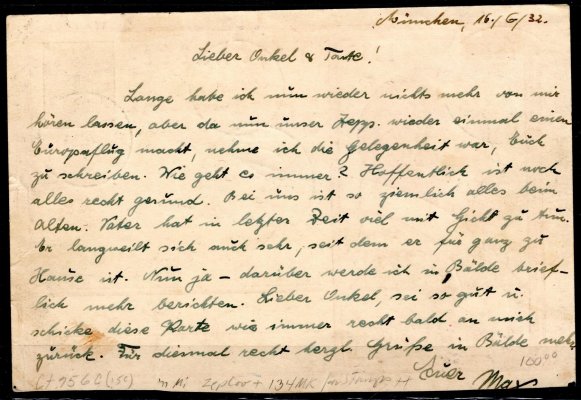 München, 16/6/32.
Lieber Onkel & Tante!
Lange habe ich nun wieder nichts mehr von mir
hören lassen, aber da nun unser Zepp. wieder einmal einen
Europaflug macht, nehme ich die Gelegenheit war, Euch
zu schreiben. Wie geht es immer? Hoffentlich ist noch
alles recht gesund. Bei uns ist so ziemlich alles beim
Alten. Vater hat in letzter Zeit viel mit Gicht zu tun.
Er langweilt sich auch sehr, seit dem er für ganz zu
Hause ist. Nun ja – darüber werde ich in Bälde brief-
lich mehr berichten. Lieber Onkel, sei so gut u.
schicke diese Karte wie immer recht bald an mich
zurück. Für diesmal recht herzl. Grüße in Bälde mehr
Euer
Max
100°°
Mi Zepp 134 MK